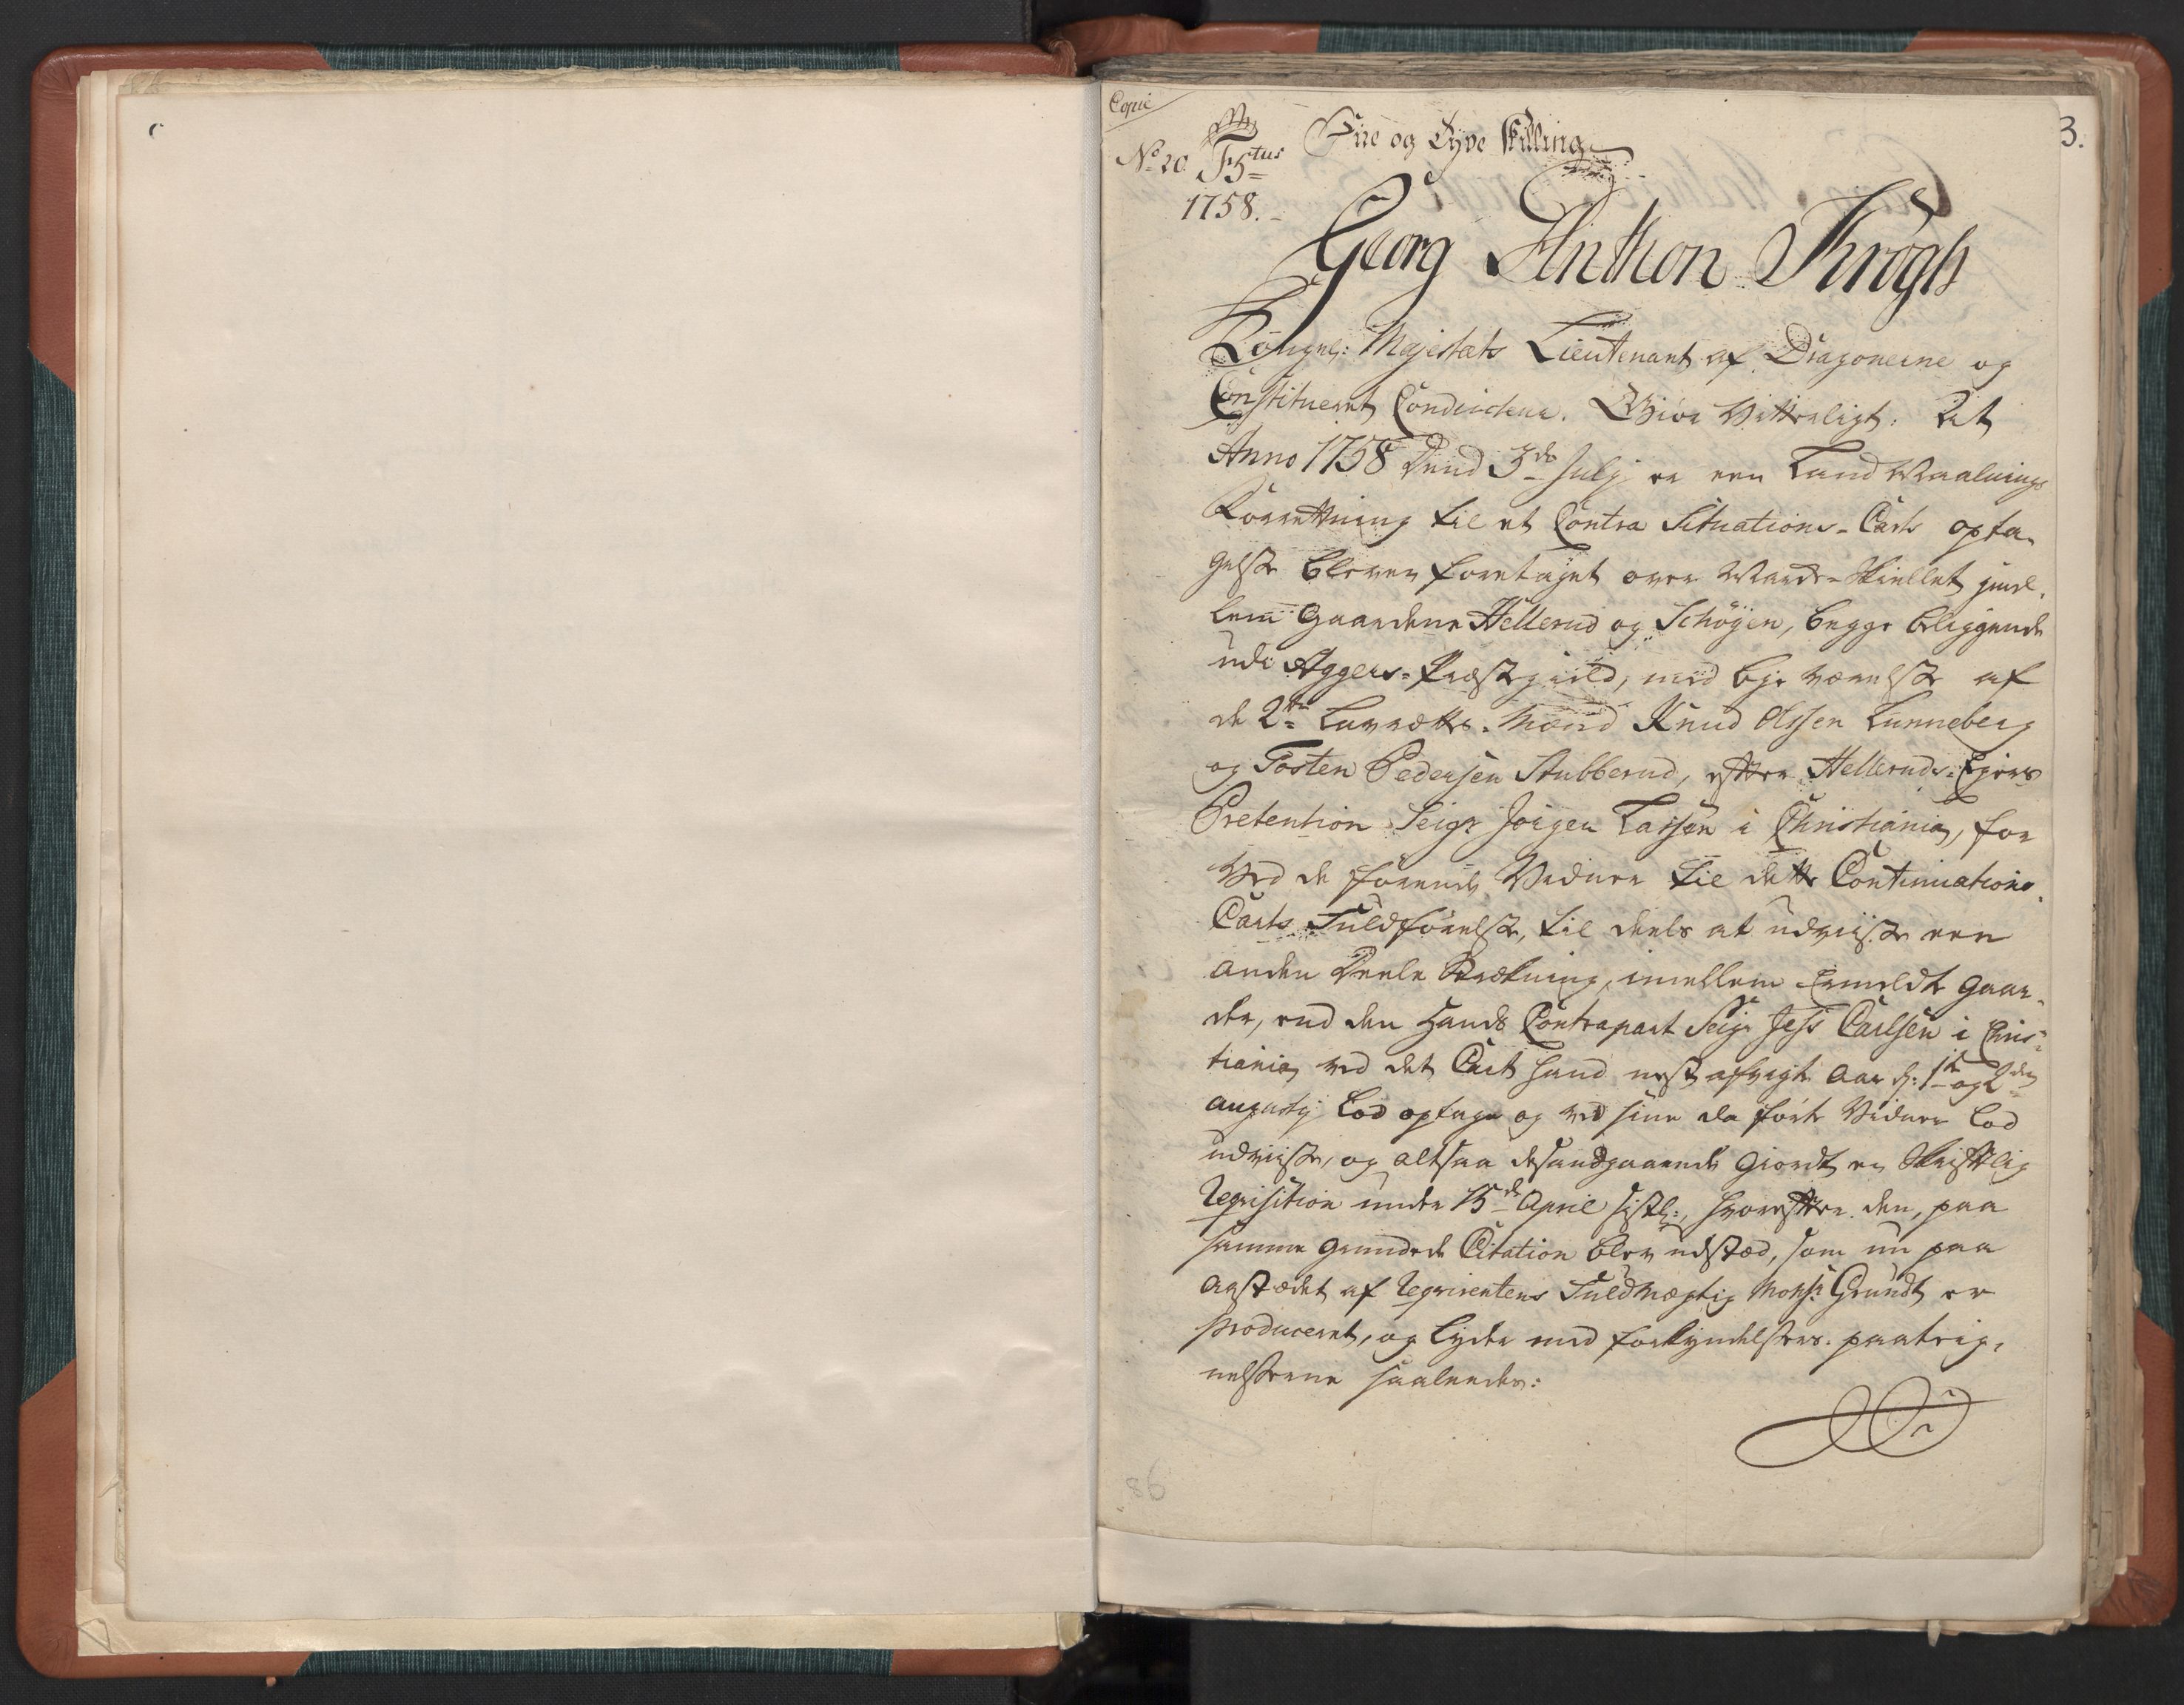 Copie
3.
No 20. F5tus Fire og Tyve Skilling
1758.
Georg Anthon Krogh
Kongel: Majestæts Lieutenant af Dragonerne og
Constitueret Conducteur. Giør Vitterligt: At
Anno 1758 Dend 3de Julj er een Land Maalnings
Forrettning til et Contra Situations-Carts opta-
gelse bleven foretaget over Marke-Skiellet imel-
lem Gaardene Hellerud og Schøyen, begge beliggende
udi Aggers-Præstegield, med bye værelse af
de 2de Laurætts-Mænd Knud Olssen Lunneberg
og Tosten Pedersen Stubberud, efter Helleruds-Ejers
Pretention Seigr Jørgen Larsen i Christiania, for
Ved de førende Vidner til dette Continuations-
Carts Fuldførelse, til deels at udviise een
anden Deele Strækning, imellem bemeldte Gaar-
der, end den hands Contrapart Seigr Jess Carlsen i Chris-
tiania ved det Cart hand nest afvigte Aar d: 1te og 2den
augustj lod optage og ved sine da førte Vidner lod
udviise, og altsaa desangaaende giordt en Skriftlig
Reqvisition under 15de April sistl:, hvorefter den, paa
samme grundede Citation blev udstæd, som nu paa
aastædet af Reqvirentens Fuldmægtig Monsr Grundt er
produceret, og lyder med forkyndelsens paateig-
nelserne saaledes: